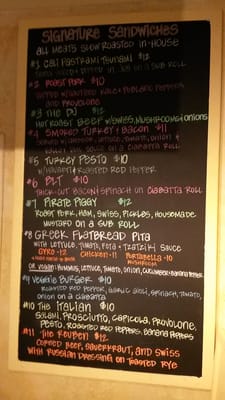 Signature Sandwiches
All Meats Slow Roasted In-House
#1 Cali Pastrami Tsunami $12
on a Sub Roll
#2 Roast Pork $10
and Provolone
#3 The DJ $12
Hot Roast Beef w/ Swiss, Mushrooms & Onions
#4 Smoked Turkey & Bacon $11
on a Ciabatta Roll
#5 Turkey Pesto $10
w/ Havarti & Roasted Red Pepper
#6 BLT $10
Thick-cut Bacon, Spinach on Ciabatta Roll
#7 Pirate Piggy $12
Roast Pork, Ham, Swiss, Pickles, Housemade
Mustard on a Sub Roll
#8 Greek Flatbread Pita
with Lettuce, Tomato, Feta & Tzatziki Sauce
Gyro •12 Chicken •11 Portabella •10
Mushroom
or Vegan: Hummus, Lettuce, Tomato, Onion, Cucumber & Banana Peppers
#9 Veggie Burger $10
Roasted Red Pepper, Garlic Aioli, Spinach, Tomato,
Onion on a Ciabatta
#10 The Italian $10
Salami, Prosciutto, Capicola, Provolone,
Pesto, Roasted Red Peppers, Banana Peppers
#11 The Reuben $12
Corned Beef, Sauerkraut, and Swiss
with Russian Dressing on Toasted Rye